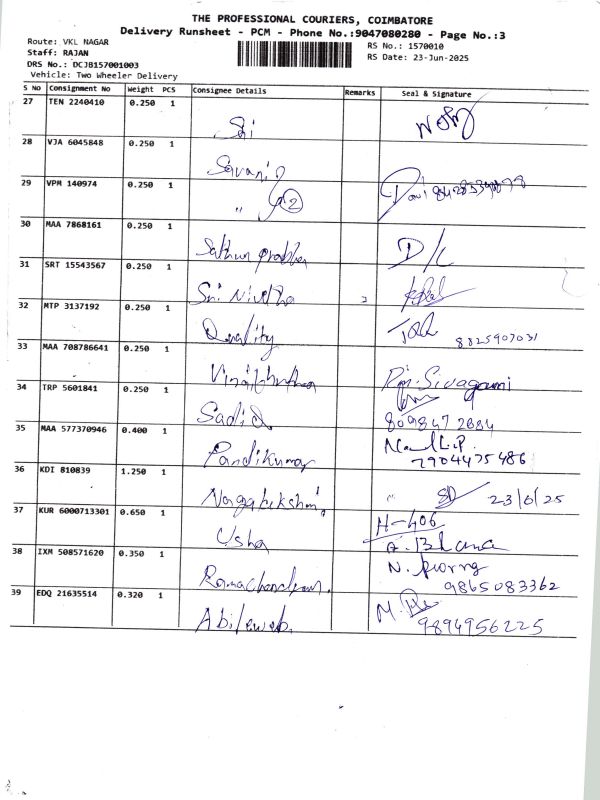 THE PROFESSIONAL COURIERS, COIMBATORE
Delivery Runsheet - PCM - Phone No.:9047080280 - Page No.:3
Route: VKL NAGAR
Staff: RAJAN
DRS No.: DCJB157001003
Vehicle: Two Wheeler Delivery
RS No.: 1570010
RS Date: 23-Jun-2025
S No Consignment No Weight PCS Consignee Details Remarks Seal & Signature
27 TEN 2240410 0.250 1
28 VJA 6045848 0.250 1
29 VPM 140974 0.250 1 " 2
30 MAA 7868161 0.250 1 D/C
31 SRT 15543567 0.250 1 Sri Nivetha
32 MTP 3137192 0.250 1 Quality 8825907031
33 MAA 708786641 0.250 1 Sivagami
34 TRP 5601841 0.250 1 Sadiq 8098472684
35 MAA 577370946 0.400 1 Pandikumar 7904475486
36 KDI 810839 1.250 1 23/6/25
37 KUR 6000713301 0.650 1 Usha H-406
A. Bhanu
38 IXM 508571620 0.350 1 Ramachandran. N.
9865083362
39 EDQ 21635514 0.320 1 M.
9894956225